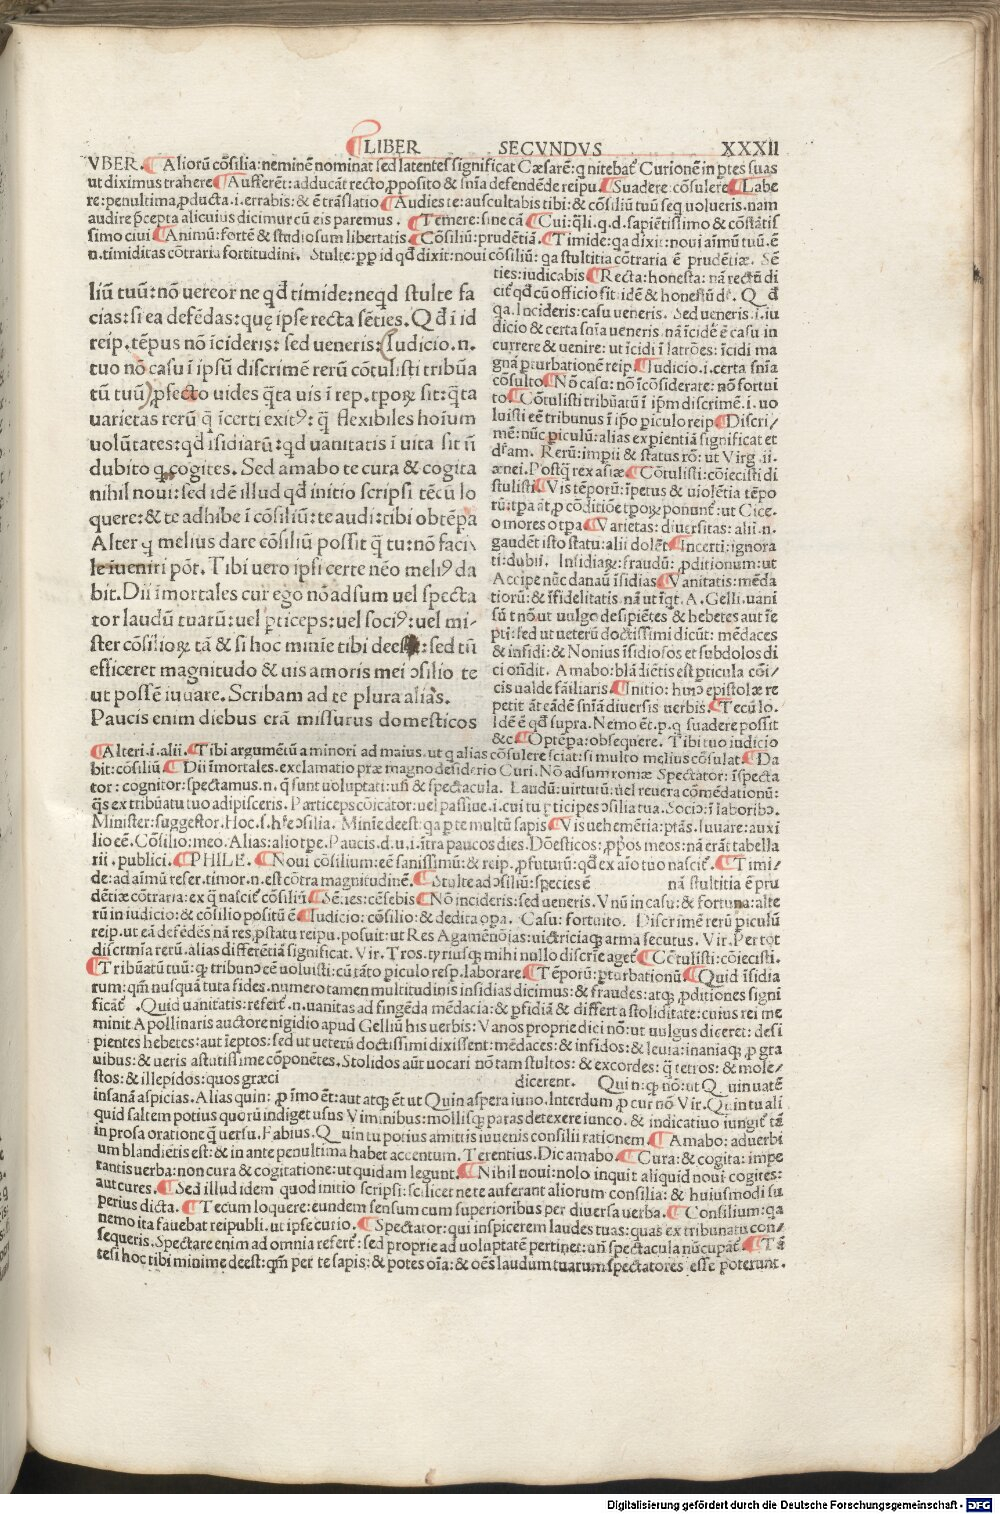 LIBER SECVNDVS XXXII
VBER. ¶ Aliorũ cõsilia: neminẽ nominat sed latentes significat Cæsarẽ: q nitebat᷑ Curionẽ in ꝑtes suas
ut diximus trahere ¶ Aufferẽt: adducãt recto ꝓposito & sñia defendẽde reipu. ¶ Suadere cõsulere ¶ Labe
re: penultima ꝓducta .i. errabis: & ẽ trãslatio ¶ Audies te: auscultabis tibi: & cõsiliũ tuũ seq̃ volueris. nam
audire p̃cepta alicuius dicimur cũ eis paremus. ¶ Temere: sine cã ¶ Cui: q̃li .q.d. sapiẽtissimo & cõstãtis
simo ciui ¶ Animũ: fortẽ & studiosum libertatis ¶ Cõsiliũ: prudẽtiã. ¶ Timide: qa dixit: noui aĩmũ tuũ .ẽ
n. timiditas cõtraria fortitudini. Stulte: ꝓp id qđ dixit: noui cõsiliũ: qa stultitia cõtraria ẽ prudẽtiæ. Sẽ
liũ tuũ: nõ uereor ne qđ timide: neqđ stulte fa
cias: si ea defẽdas: quę ipse recta sẽties. Qđ ĩ id
reip. tẽpus nõ ĩcideris: sed ueneris: (Iudicio .n.
tuo nõ casu ĩ ipsũ discrimẽ rerũ cõtulisti tribũa
tũ tuũ) ꝓfecto uides q̃ta uis ĩ rep. tꝑoꝝ sit: q̃ta
varietas rerũ q̃ ĩcerti exitꝰ: q̃ flexibiles hoĩum
uolũtates: qđ ĩsidiarũ: qđ uanitatis ĩ uita sit ñ
dubito q cogites. Sed amabo te cura & cogita
nihil noui: sed idẽ illud qđ initio scripsi tẽcũ lo
quere: & te adhibe ĩ cõsiliũ: te audi: tibi obtẽpã
Alter q melius dare cõsiliũ possit q̃ tu: nõ faci
le iueniri põt. Tibi uero ipsi certe nẽo meliꝰ da
bit. Dii ĩmortales cur ego nõ adsum uel specta
tor laudũ tuarũ: uel ꝑticeps: uel sociꝰ: uel mi-
ster cõsilioꝝ tã & si hoc minĩe tibi deest: sed tñ
efficeret magnitudo & uis amoris mei ɔsilio te
ut possẽ iuuare. Scribam ad te plura aliàs.
Paucis enim diebus erã missurus domesticos
ties: iudicabis ¶ Recta: honesta: nã rectũ di
cit᷑ qđ cũ officio fit. idẽ & honestũ dr̃. Qđ
qa. Incideris: casu ueneris. Sed ueneris .i. iu
dicio & certa sñia ueneris. nã ĩcidẽ ẽ casu in
currere & uenire: ut ĩcidi ĩ latrões: ĩcidi ma
gnã ꝑturbationẽ reip. ¶ Iudicio .i. certa sñia
cõsulto ¶ Nõ casu: nõ ĩcõsiderate: nõ fortui
to ¶ Cõtulisti tribũatũ ĩ ip̃m discrimẽ .i. uo
luisti eẽ tribunus ĩ ip̃o ꝑiculo reip ¶ Discri/
mẽ: nũc ꝑiculũ: alias expientiã significat et
dr̃am. Rerũ: impii & status rõ: ut Virg .ii.
ænei. Postq̃ rex asiæ ¶ Cõtulisti: cõiecisti di
stulisti ¶ Vis tẽporũ: ĩpetus & uiolẽtia tẽpo
rũ: tpa at᷑ ꝓ cõditiõe tꝑoꝝ ponunt᷑: ut Cice.
o mores o tpa ¶ Varietas: diuersitas: alii .n.
gaudẽt isto statu: alii dolẽt ¶ Incerti: ignora
ti: dubii. Insidiaꝝ: fraudũ: ꝓditionum: ut
Accipe nũc danaũ ĩsidias ¶ Vanitatis: mẽda
tiorũ: & ĩfidelitatis. nã ut ĩqt. A. Gelli. uani
sũt nõ ut uulgo desipiẽtes & hebetes aut ĩe
pti: sed ut ueterũ doctissimi dicũt: mẽdaces
& infidi: & Nonius ĩsidiosos et subdolos di
ci oñdit. Amabo: blãdiẽtis est ꝑticula cõi/
cis ualde fãiliaris. ¶ Initio: hui᷒ epistolæ re
petit ãt eãdẽ sñiã diuersis uerbis. ¶ Tecũ lo.
Idẽ ẽ qđ supra. Nemo ẽt .p.q suadere possit
&c. ¶ Optẽpa: obsequere. Tibi tuo iudicio
¶ Alteri .i. alii. ¶ Tibi argumẽtũ a minori ad maius. ut q alias cõsulere sciat: si multo melius cõsulat. ¶ Da
bit: cõsiliũ ¶ Dii ĩmortales. exclamatio præ magno desiderio Curi. Nõ adsum romæ Spectator: ĩspecta
tor: cognitor: spectamus .n. q̃ sunt uoluptati: uñ & spectacula. Laudũ: uirtutũ: uel reuera cõmẽdationũ:
q̃s ex tribũatu tuo adipisceris. Particeps cõicator: uel passiue .i. cui tu ꝑticipes ɔsilia tua. Soci᷒: ĩ laborib᷒.
Minister: suggestor. Hoc .s. hr̃e ɔsilia. Minĩe deest: qa ꝑ te multũ sapis ¶ Vis uehemẽtia: ptãs. Iuuare: auxi
lio eẽ. Cõsilio: meo. Alias: alio tpe. Paucis .d.u.i. ĩtra paucos dies. Dõesticos: ꝓpos meos: nã erãt tabella
rii. publici. ¶ PHILE. ¶ Noui cõsilium: eẽ sanissimũ: & reip. ꝓfuturũ: qđ ex aĩo tuo nascit᷑. ¶ Timi/
de: ad aĩmũ refer. timor .n. est cõtra magnitudinẽ. ¶ Stulte ad ɔsiliũ: species ẽ nã stultitia ẽ pru
dẽtiæ cõtraria: ex q̃ nascit᷑ cõsiliũ ¶ Sẽ.ies: cẽsebis ¶ Nõ incideris: sed ueneris. Vnũ in casu: & fortuna: alte
rũ in iudicio: & cõsilio positũ ẽ ¶ Iudicio: cõsilio: & dedita opa. Casu: fortuito. Discrimẽ rerũ ꝑiculũ
reip. ut eã defẽdẽs nã res ꝓ statu reipu. posuit: ut Res Agamẽnõias: uictriciaqꝫ arma secutus. Vir. Per tot
discrmĩa rerũ. alias differẽtiã significat. Vir. Tros. tyriusqꝫ mihi nullo discrĩe aget᷑ ¶ Cõtulisti: cõiecisti.
¶ Tribũatũ tuũ: qꝫ tribun᷒ eẽ uoluisti: cũ tãto ꝑiculo resp. laborare. ¶ Tẽporũ: ꝑturbationũ. ¶ Quid ĩsidia
rum: qm̃ nusquã tuta fides. numero tamen multitudinis insidias dicimus: & fraudes: atqꝫ ꝓditiones signi
ficãt᷑. Quid uanitatis: refert᷑ .n. uanitas ad fingẽda mẽdacia: & ꝑfidiã & differt a stoliditate: cuius rei me
minit Apollinaris auctore nigidio apud Gelliũ his uerbis: Vanos proprie dici nõ: ut uulgus diceret: desi
pientes hebetes: aut ĩeptos: sed ut ueterũ doctissimi dixissent: mẽdaces: & infidos: & leuia: inaniaqꝫ ꝓ gra
uibus: & ueris astutissime cõponẽtes. Stolidos aũt uocari nõ tam stultos: & excordes: q̃ tetros: & mole-
stos: & illepidos: quos græci dicerent. Quin: qꝫ nõ: ut Quin uatẽ
insanã aspicias. Alias quin: ꝓ ĩmo ẽt: aut atqꝫ ẽt ut Quin aspera iuno. Interdum ꝓ cur nõ Vir. Quin tu ali
quid saltem potius quorũ indiget usus Viminibus: mollisqꝫ paras detexere iunco. & indicatiuo iungit᷑ tã
in prosa oratione q̃ uersu. Fabius. Quin tu potius amittis iuuenis consilii rationem. ¶ Amabo: aduerbi
um blandiẽtis est: & in ante penultima habet accentum. Terentius. Dic amabo. ¶ Cura: & cogita: impe
rantis uerba: non cura & cogitatione: ut quidam legunt. ¶ Nihil noui: nolo inquit aliquid noui cogites:
aut cures. ¶ Sed illud idem quod initio scripsi: scilicet ne te auferant aliorum consilia: & huiusmodi su
perius dicta. ¶ Tecum loquere: eundem sensum cum superioribus per diuersa uerba. ¶ Consilium: qa
nemo ita fauebat reipubli. ut ipse curio. ¶ Spectator: qui inspicerem laudes tuas: quas ex tribunatu con/
sequeris. Spectare enim ad omnia refert᷑: sed proprie ad uoluptatẽ pertinet: uñ spectacula nũcupãt᷑. ¶ Tã
tesi hoc tibi minime deest: qm̃ per te sapis: & potes oĩa: & oẽs laudum tuarum spectatores esse poterunt.
Digitalisierung gefördert durch die Deutsche Forschungsgemeinschaft - DFG